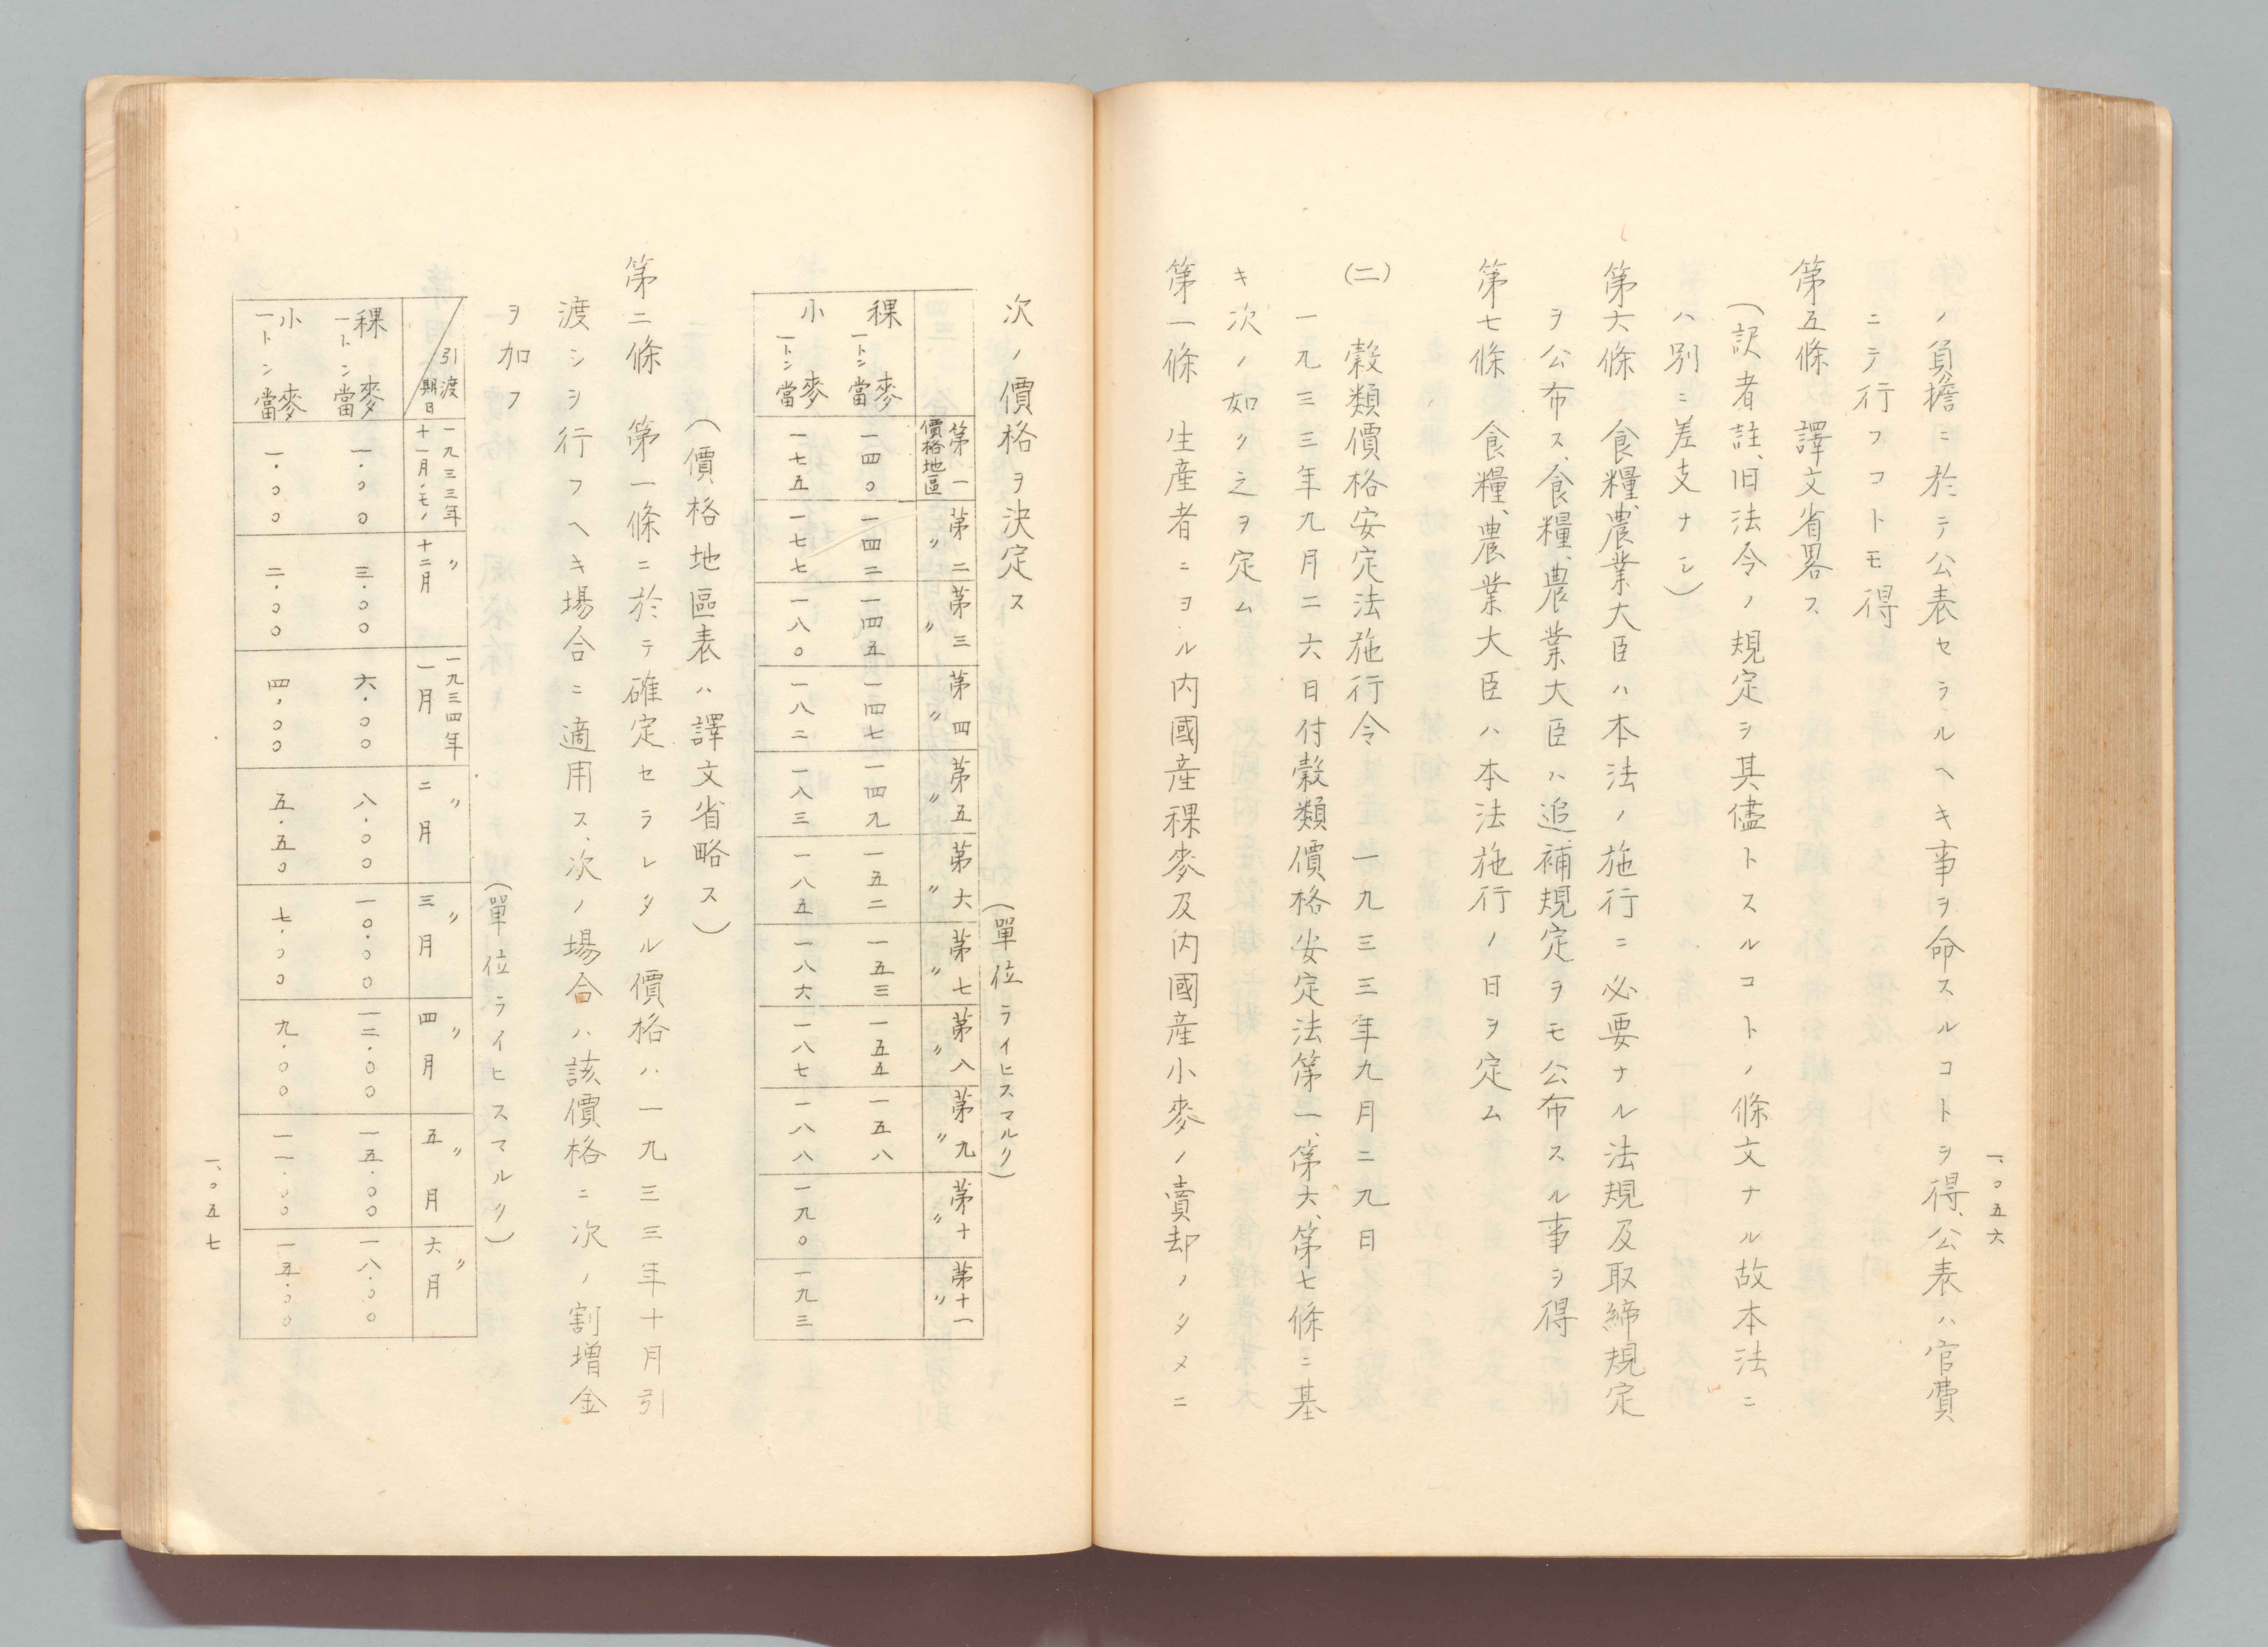 一、〇五六
ノ負擔ニ於テ公表セラルヘキ事ヲ命スルコトヲ得、公表ハ官費
ニテ行フコトモ得
第五條　譯文省畧ス
(訳者註、旧法令ノ規定ヲ其儘トスルコトノ條文ナル故本法ニ
ハ別ニ差支ナシ)
第六條　食糧、農業大臣ハ本法ノ施行ニ必要ナル法規及取締規定
ヲ公布ス、食糧、農業大臣ハ追補規定ヲモ公布スル事ヲ得
第七條　食糧、農業大臣ハ本法施行ノ日ヲ定ム
(二)　穀類價格安定法施行令　一九三三年九月二九日
一九三三年九月二六日付穀類價格安定法第一、第六、第七條ニ基
キ次ノ如ク之ヲ定ム
第一條　生産者ニヨル内國産稞麥及内國産小麥ノ賣却ノタメニ
次ノ價格ヲ決定ス
(單位ライヒスマルク)
第一價格地區　第二〃　第三〃　第四〃　第五〃　第六〃　第七〃　第八〃　第九〃　第十〃　第十一〃
稞麥一トン當　一四〇　一四二　一四五　一四七　一四九　一五二　一五三　一五五　一五八
小麥一トン當　一七五　一七七　一八〇　一八二　一八三　一八五　一八六　一八七　一八八　一九〇　一九三
(價格地區表ハ譯文省略ス)
第二條　第一條ニ於テ確定セラレタル價格ハ一九三三年十月引
渡シヲ行フヘキ場合ニ適用ス、次ノ場合ハ該價格ニ次ノ割増金
ヲ加フ
(單位ライヒスマルク)
引渡期日　一九三三年十一月・モノ　〃十二月　一九三四年一月　〃二月　〃三月　〃四月　〃五月　〃六月
稞麥一トン當　一・〇〇　三・〇〇　六・〇〇　八・〇〇　一〇・〇〇　一二・〇〇　一五・〇〇　一八・〇〇
小麥一トン當　一・〇〇　二・〇〇　四・〇〇　五・五〇　七・〇〇　九・〇〇　一一・〇〇　一五・〇〇
一、〇五七